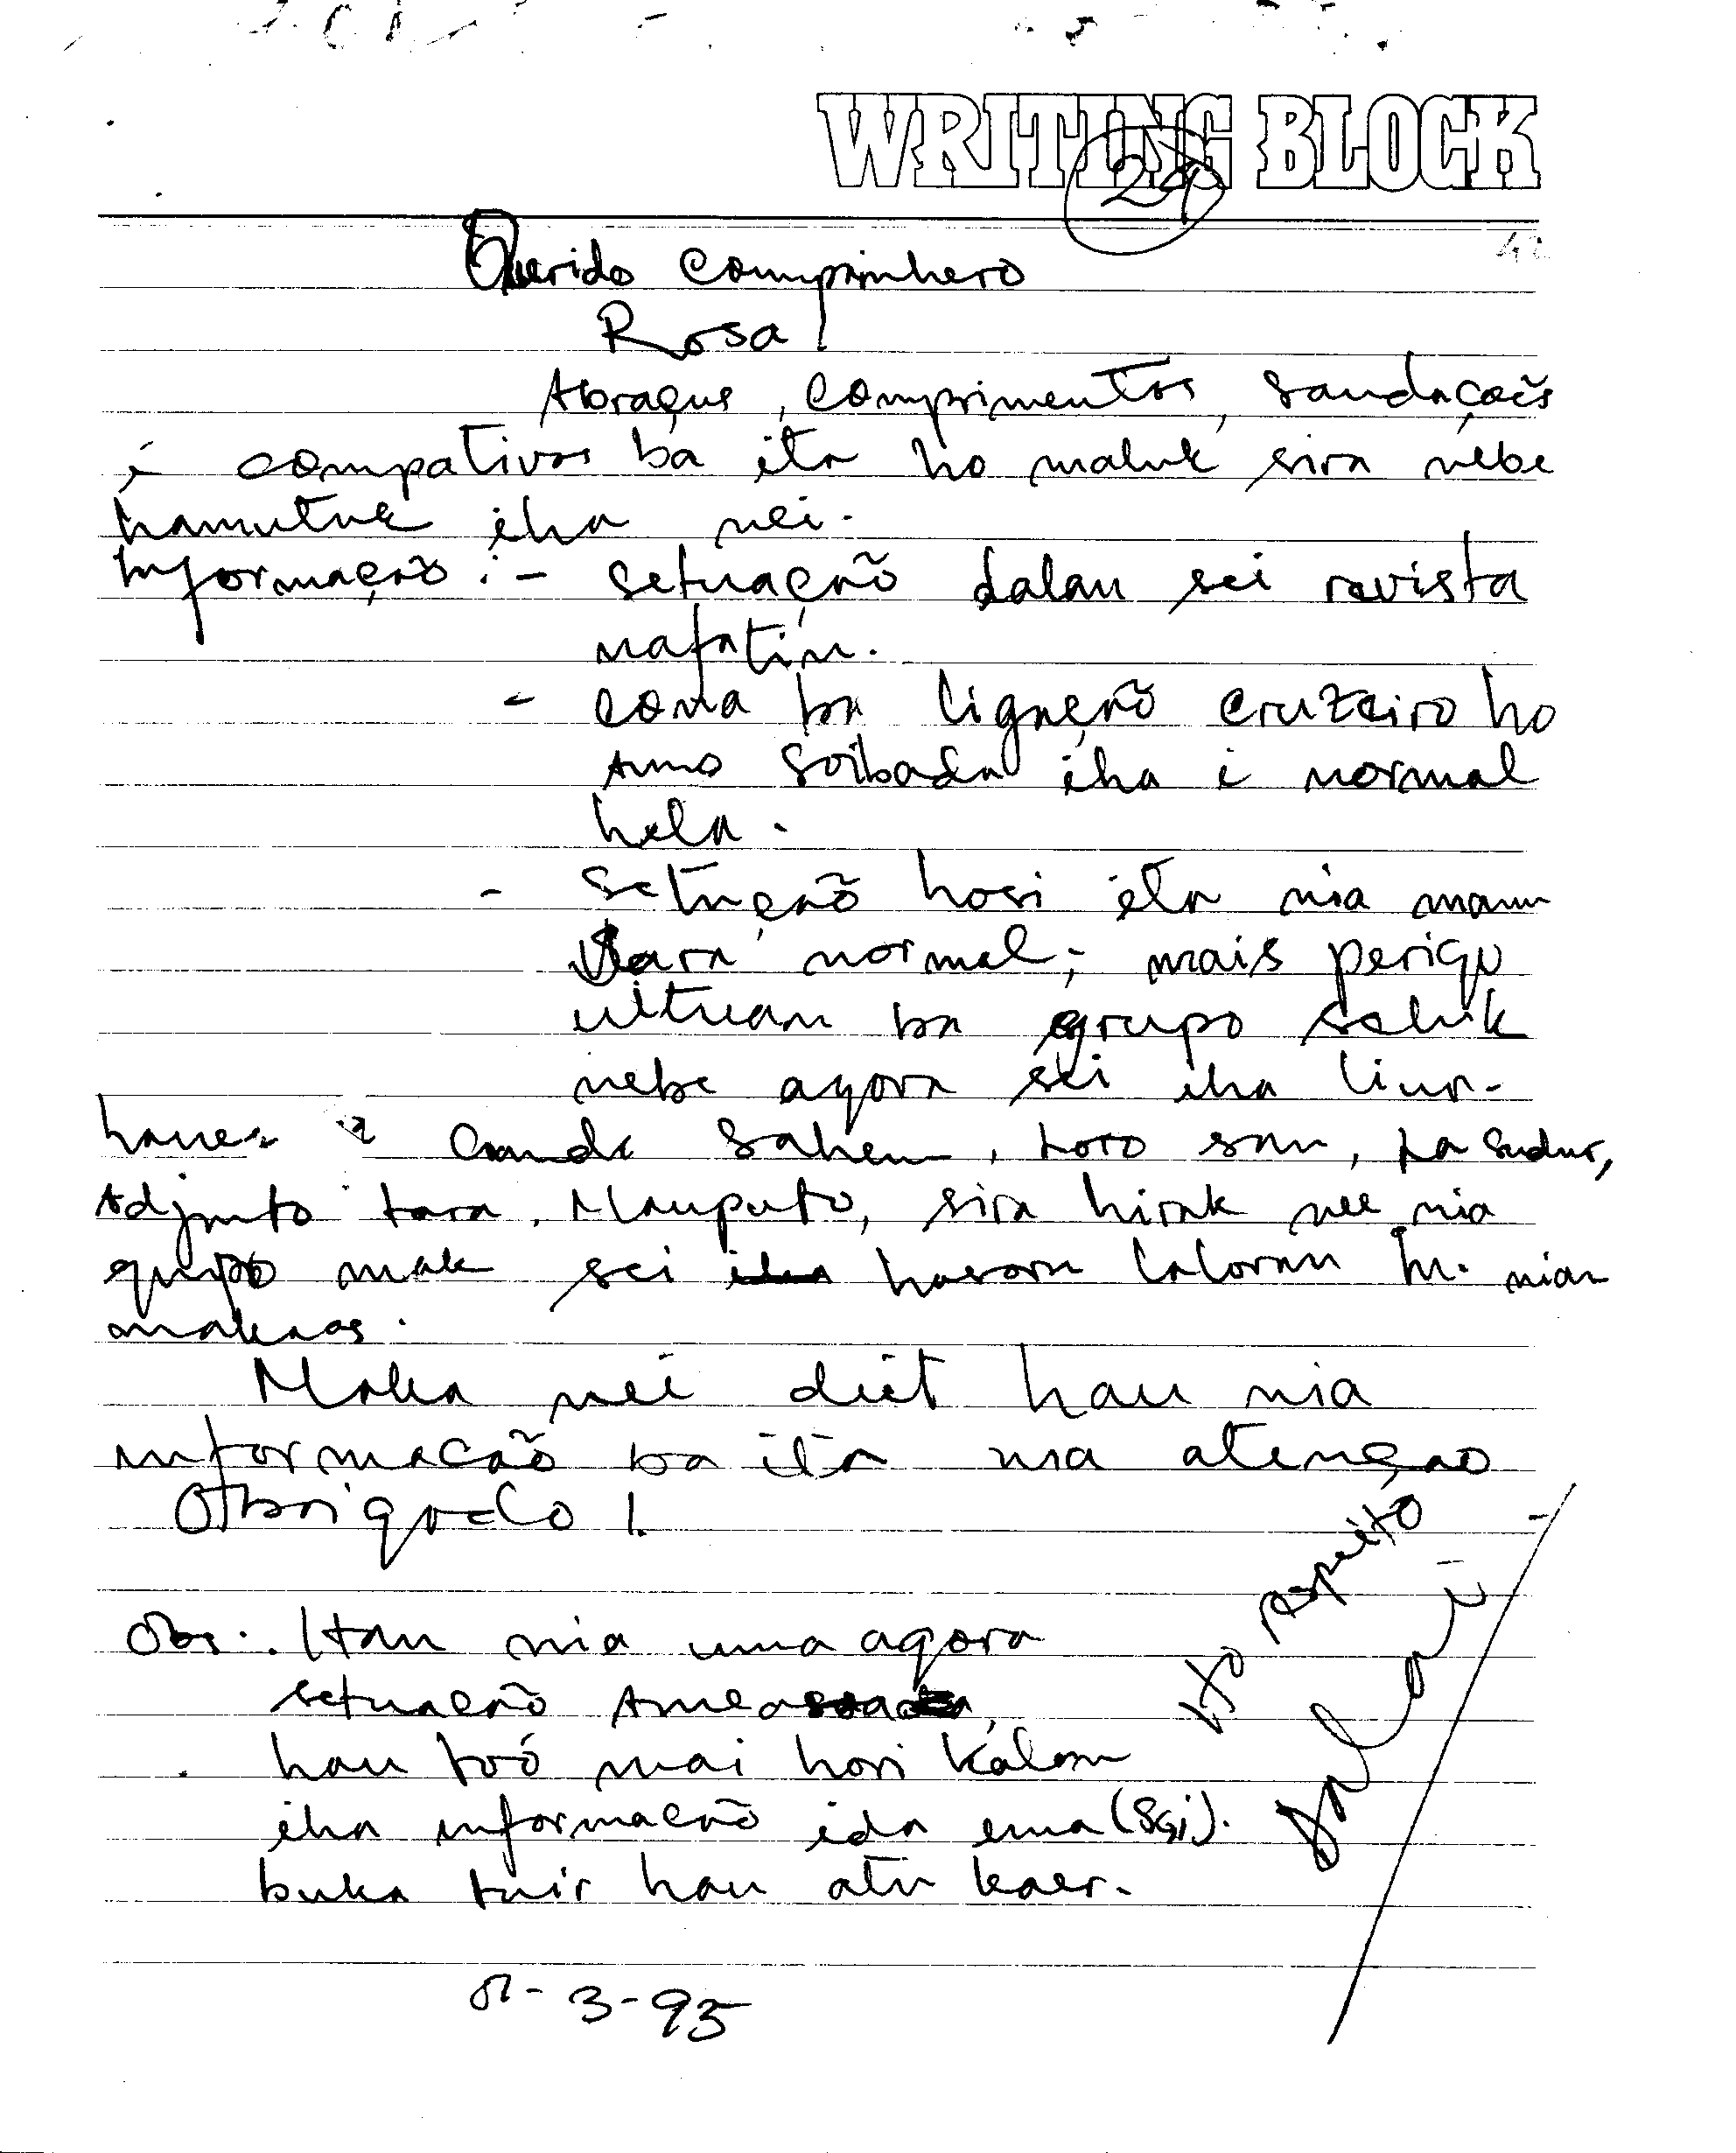 WRITING BLOCK
29
Querido companhero
Rosa!
Abraçus, comprimentos, saudaçoẽs
i compativos ba ita ho maluk sira nebe
hamutuk iha nei.
Informação: - setuação dalan sei revista
nafatin.
- cona ba ligação cruzeiro ho
Amo Soibada iha i normal
hela.
- Setução hosi ita nia maun
Sara normal; mais perigu
uituan ba grupo seluk
nebe agora sei iha liur-
Sahe, Loro sau,
Adjunto tara, Mauputo, sira hirak nee nia
grupo mak sei hasoru laloran nian
makaas.
Maka nei diet hau nia
informacão ba ita nia atençao
Obrigado!.
Obs:. Hau nia uma agora
setuação
hau too mai hori kalan
iha informação ida ema (Sgi).
buka tuir hau atu kaer.
Ho respeito
01-3-95